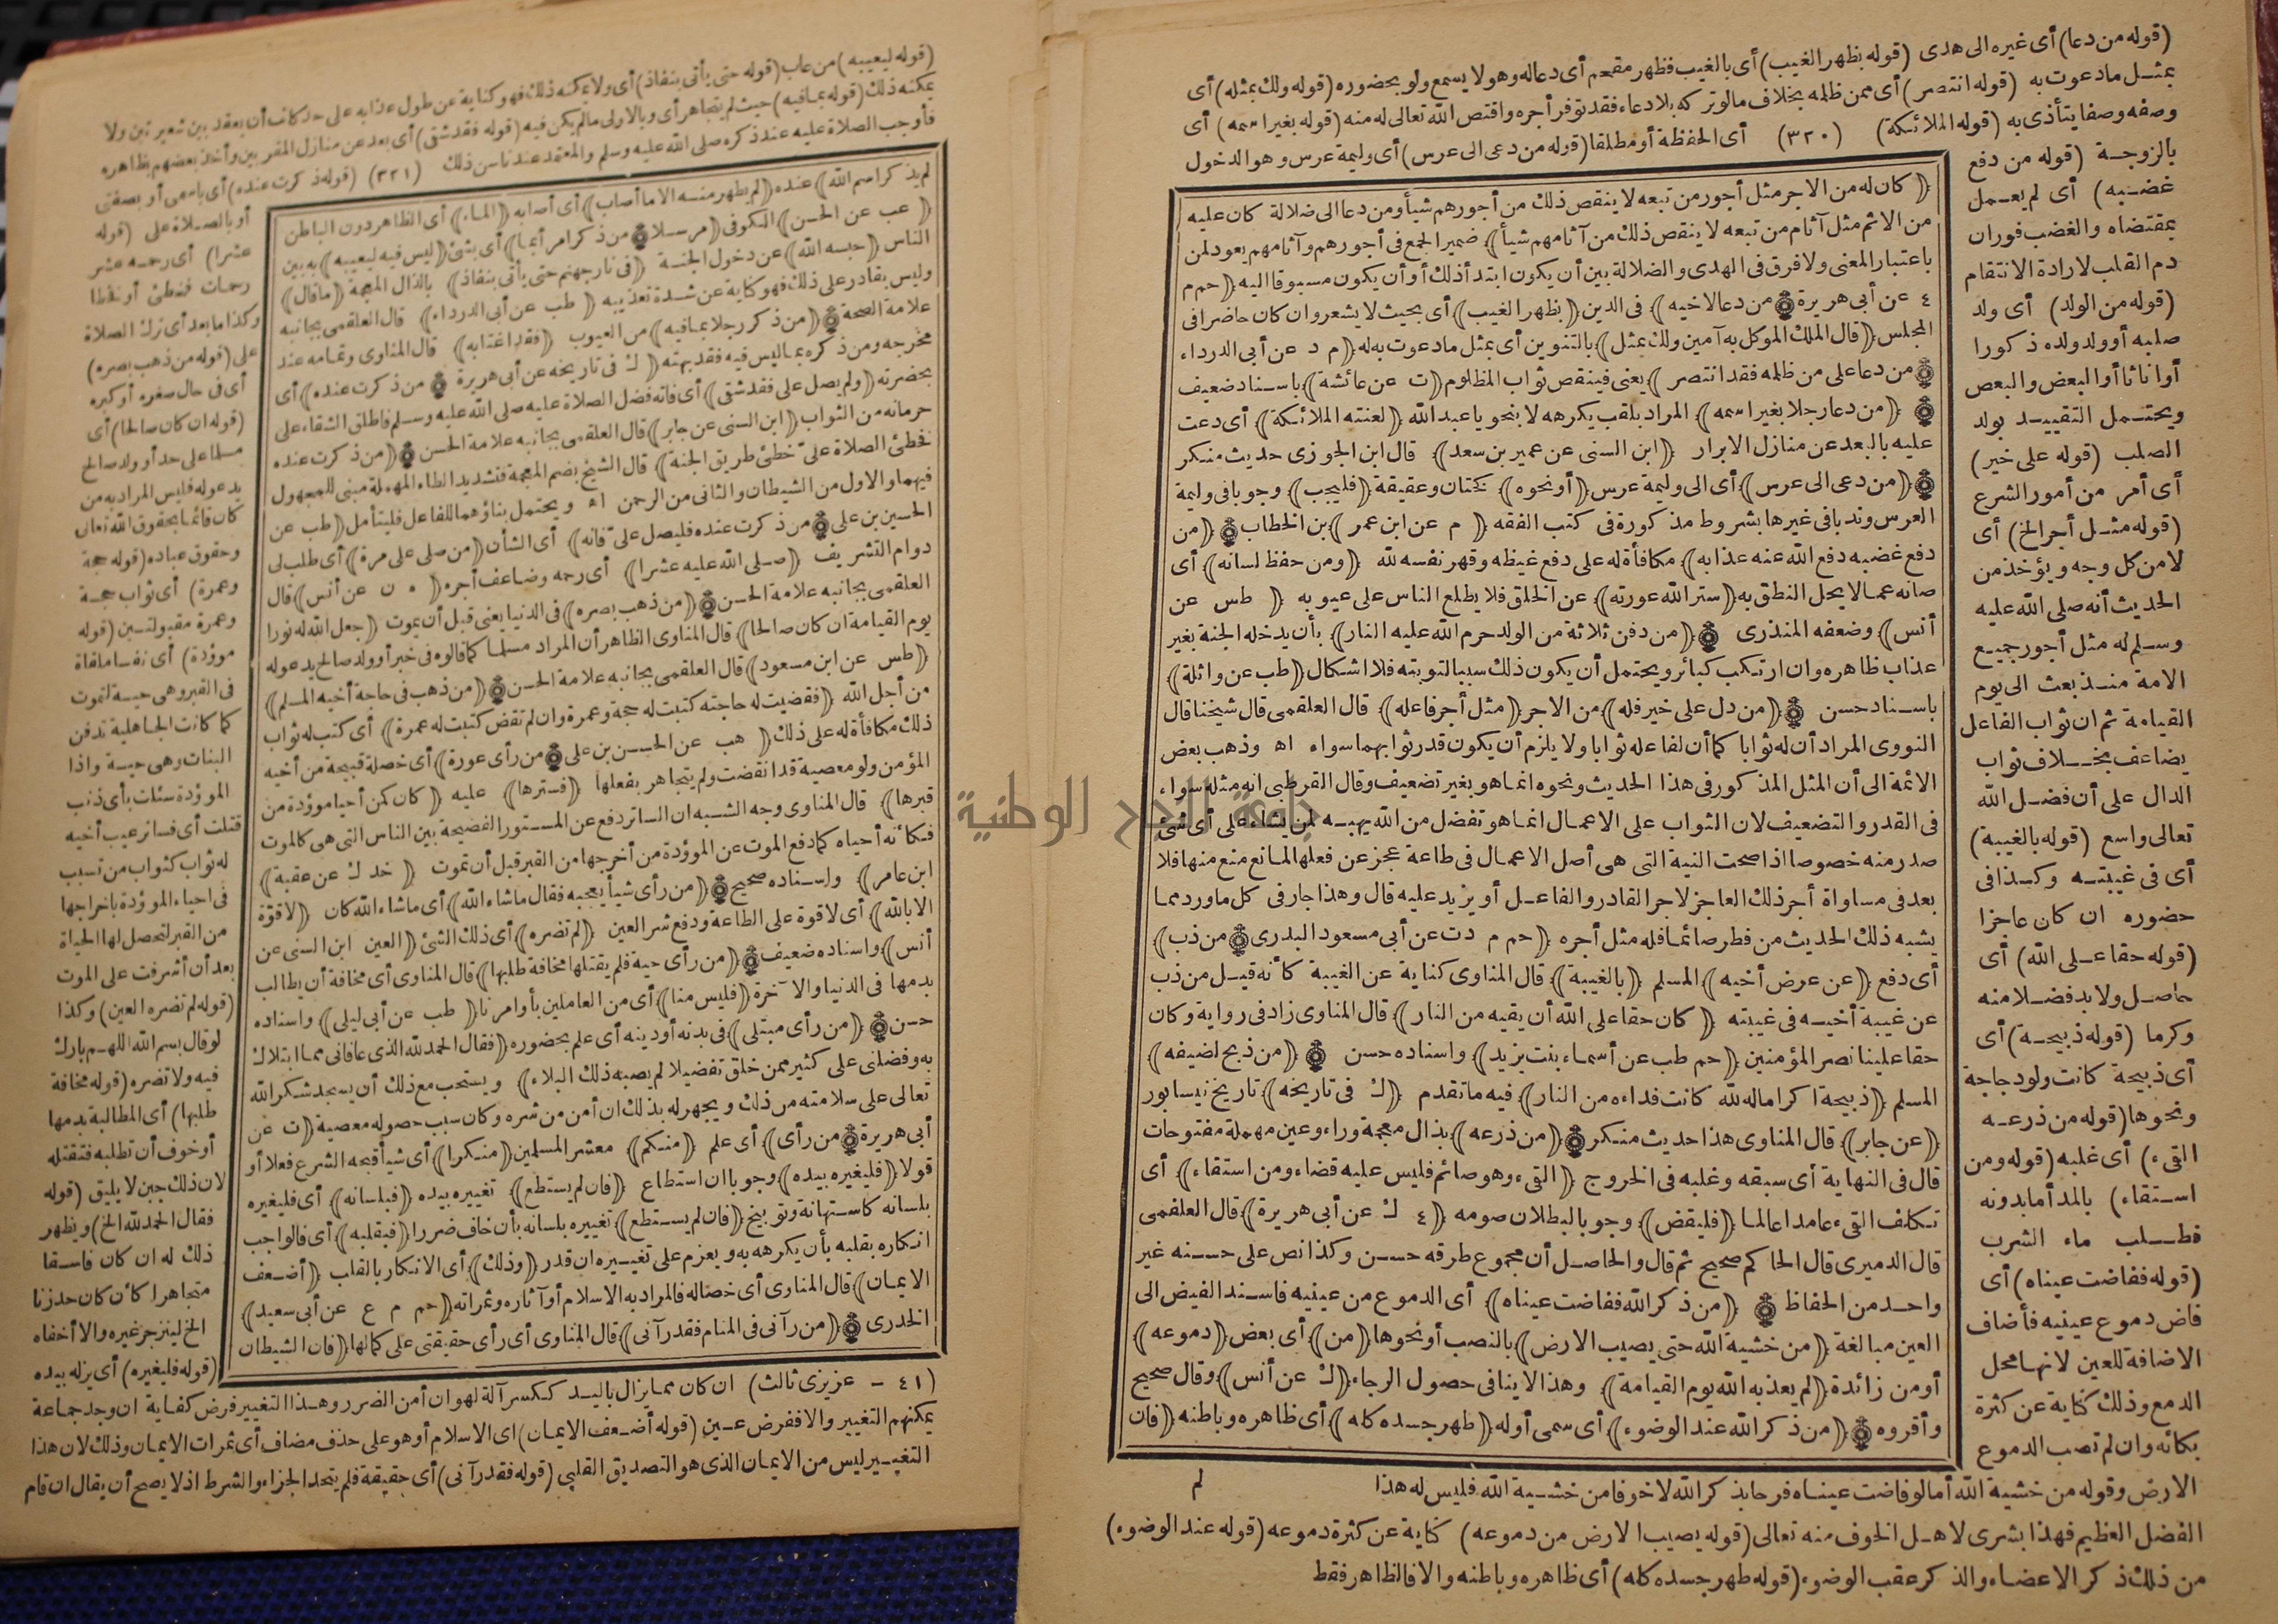 (قوله من دعا) أى غيره الى هدى (قوله بظهر الغيب) أى بالغيب فظهر مقحم أى دعاله وهو لا يسمع ولو بحضوره (قوله ولك بمثله) أى
بمثل ما دعوت به (قوله انتصر) أى ممن ظلمه بخلاف ما لو تركه بلا دعاء فقد توفر أجره واقتص الله تعالى له منه (قوله بغير اسمه) أى
وصفه وصفا يتأذى به (قوله الملائكة) (٣٢٠) أى الحفظة أو مطلقا (قوله من دعى الى عرس) أى وليمة عرس وهو الدخول
بالزوجة (قوله من دفع
غضبه) أى لم يعمل
بمقتضاه والغضب فوران
دم القلب لارادة الانتقام
(قوله من الولد) أى ولد
صلبه أو ولد ولده ذكورا
أو اناثا أو البعض والبعض
ويحتمل التقييد بولد
الصلب (قوله على خير)
أى أمر من أمور الشرع
(قوله مثل أجر الخ) أى
لا من كل وجه ويؤخذ من
الحديث أنه صلى الله عليه
وسلم له مثل أجور جميع
الامة منذ بعث الى يوم
القيامة ثم ان ثواب الفاعل
يضاعف بخلاف ثواب
الدال على أن فضل الله
تعالى واسع (قوله بالغيبة)
أى فى غيبته وكذا فى
حضوره ان كان عاجزا
(قوله حقا على الله) أى
حاصل ولا بد فضلا منه
وكرما (قوله ذبيحة) أى
أى ذبيحة كانت ولو دجاجة
ونحوها (قوله من ذرعه
القىء) أى غلبه (قوله ومن
استقاء) بالمد أما بدونه
فطلب ماء الشرب
(قوله ففاضت عيناه) أى
فاض دموع عينيه فأضاف
الاضافة للعين لانها محل
الدمع وذلك كناية عن كثرة
بكائه وان لم تصب الدموع
(كان له من الاجر مثل أجور من تبعه لا ينقص ذلك من أجورهم شيأ ومن دعا الى ضلالة كان عليه
من الاثم مثل آثام من تبعه لا ينقص ذلك من آثامهم شيأ) ضمير الجمع فى أجورهم وآثامهم يعود لمن
باعتبار المعنى ولا فرق فى الهدى والضلالة بين أن يكون ابتدأ ذلك أو أن يكون مسبوقا اليه (حم م
٤ عن أبى هريرة) (من دعا لاخيه) فى الدين (بظهر الغيب) أى بحيث لا يشعر وان كان حاضرا فى
المجلس (قال الملك الموكل به آمين ولك بمثل) بالتنوين أى بمثل ما دعوت به له (م د عن أبى الدرداء
(من دعا على من ظلمه فقد انتصر) يعنى فينقص ثواب المظلوم (ت عن عائشة) باسناد ضعيف
(من دعا رجلا بغير اسمه) المراد بلقب يكرهه لا بنحو يا عبد الله (لعنته الملائكة) أى دعت
عليه بالبعد عن منازل الابرار (ابن السنى عن عمير بن سعد) قال ابن الجوزى حديث منكر
(من دعى الى عرس) أى الى وليمة عرس (أو نحوه) كختان وعقيقة (فليجب) وجوبا فى وليمة
العرس وندبا فى غيرها بشروط مذكورة فى كتب الفقه (م عن ابن عمر) بن الخطاب (من
دفع غضبه دفع الله عنه عذابه) مكافأة له على دفع غيظه وقهر نفسه لله (ومن حفظ لسانه) أى
صانه عما لا يحل النطق به (ستر الله عورته) عن الخلق فلا يطلع الناس على عيوبه (طس عن
أنس) وضعفه المنذرى (من دفن ثلاثة من الولد حرم الله عليه النار) بأن يدخله الجنة بغير
عذاب ظاهره وان ارتكب كبائر ويحتمل أن يكون ذلك سببا لتوبته فلا اشكال (طب عن واثلة)
باسناد حسن (من دل على خير فله) من الاجر (مثل أجر فاعله) قال العلقمى قال شيخنا قال
النووى المراد أن له ثوابا كما أن لفاعله ثوابا ولا يلزم أن يكون قدر ثوابهما سواء اه وذهب بعض
الائمة الى أن المثل المذكور فى هذا الحديث ونحوه انما هو بغير تضعيف وقال القرطبى انه مثله سواء
فى القدر والتضعيف لان الثواب على الاعمال انما هو تفضل من الله يهبه لمن يشاء على أى شئ
صدر منه خصوصا اذا صحت النية التى هى أصل الاعمال فى طاعة عجز عن فعلها لمانع منع منها فلا
بعد فى مساواة أجر ذلك العاجز لاجر القادر والفاعل أو يزيد عليه قال وهذا جار فى كل ما ورد مما
يشبه ذلك الحديث من فطر صائما فله مثل أجره (حم م د ت عن أبى مسعود البدرى) (من ذب)
أى دفع (عن عرض أخيه) المسلم (بالغيبة) قال المناوى كناية عن الغيبة كأنه قيل من ذب
عن غيبة أخيه فى غيبته (كان حقا على الله أن يقيه من النار) قال المناوى زاد فى رواية وكان
حقا علينا نصر المؤمنين (حم طب عن أسماء بنت يزيد) واسناده حسن (من ذبح لضيفه)
المسلم (ذبيحة) اكراما له لله كانت فداءه من النار) فيه ما تقدم (ك فى تاريخه) تاريخ نيسابور
(عن جابر) قال المناوى هذا حديث منكر (من ذرعه) بذال معجمة وراء وعين مهملة مفتوحات
قال فى النهاية أى سبقه وغلبه فى الخروج (القىء وهو صائم فليس عليه قضاء ومن استقاء) أى
تكلف القىء عامدا عالما (فليقض) وجوبا لبطلان صومه (٤ ك عن أبى هريرة) قال العلقمى
قال الدميرى قال الحاكم صحيح ثم قال والحاصل أن مجموع طرقه حسن وكذا نص على حسنه غير
واحد من الحفاظ (من ذكر الله ففاضت عيناه) أى الدموع من عينيه فاسند الفيض الى
العين مبالغة (من خشية الله حتى يصيب الارض) بالنصب أو نحوها (من) أى بعض (دموعه)
أو من زائدة (لم يعذبه الله يوم القيامة) وهذا لا ينافى حصول الرجاء (ك عن أنس) وقال صحيح
وأقروه (من ذكر الله عند الوضوء) أى سمى أوله (طهر جسده كله) أى ظاهره وباطنه (فان
الارض وقوله من خشية الله أما لو فاضت عيناه فرحا بذكر الله لا خوفا من خشية الله فليس له هذا
لم
الفضل العظيم فهذا بشرى لاهل الخوف منه تعالى (قوله يصيب الارض من دموعه) كناية عن كثرة دموعه (قوله عند الوضوء)
من ذلك ذكر الاعضاء والذكر عقب الوضوء (قوله طهر جسده كله) أى ظاهره وباطنه والا فالظاهر فقط
(قوله ليعيبه) من عاب (قوله حتى يأتى بنفاذ) أى ولا يمكنه ذلك فهو كناية عن طول عذابه على حد كلف أن يعقد بين شعيرتين ولا
يمكنه ذلك (قوله بما فيه) حيث لم يتجاهر أى وبالاولى ما لم يكن فيه (قوله فقد شقى) أى بعد عن منازل المقربين وأخذ بعضهم بظاهره
فأوجب الصلاة عليه عند ذكره صلى الله عليه وسلم والمعتمد عندنا سن ذلك (٣٢١) (قوله ذكرت عنده) أى باسمى أو بصفتى
أو بالصلاة على (قوله
عشرا) أى رحمه عشر
رحمات فخطئ أو فخطأ
وكذا ما بعد أى ترك الصلاة
على (قوله من ذهب بصره)
أى فى حال صغره أو كبره
(قوله ان كان صالحا) أى
مسلما على حد أو ولد صالح
يدعو له فليس المراد به من
كان قائما بحقوق الله تعالى
وحقوق عباده (قوله حجة
وعمرة) أى ثواب حجة
وعمرة مقبولتين (قوله
موؤدة) أى نفسا ملقاة
فى القبر وهى حية لتموت
كما كانت الجاهلية تدفن
البنات وهى حية واذا
الموؤدة سئلت بأى ذنب
قتلت أى فساتر عيب أخيه
له ثواب كثواب من تسبب
فى احياء الموؤدة باخراجها
من القبر لتحصل لها الحياة
بعد أن أشرفت على الموت
(قوله لم تضره العين) وكذا
لو قال بسم الله اللهم بارك
فيه ولا تضره (قوله مخافة
طلبها) أى المطالبة بدمها
أو خوف أن تطلبه فتقتله
لان ذلك جبن لا يليق (قوله
فقال الحمد لله الخ) ويظهر
ذلك له ان كان فاسقا
متجاهرا كأن كان حد زنا
الخ لينزجر غيره والا أخفاه
(قوله فليغيره) أى يزله بيده
لم يذكر اسم الله) عنده (لم يطهر منه الا ما أصاب) أى أصابه (الماء) أى الظاهر دون الباطن
(عب عن الحسن) الكوفى (مرسلا) (من ذكر امرأ بما) أى بشئ (ليس فيه ليعيبه) به بين
الناس (حبسه الله) عن دخول الجنة (فى نار جهنم حتى يأتى بنفاذ) بالذال المعجمة (ما قال)
وليس بقادر على ذلك فهو كناية عن شدة تعذيبه (طب عن أبى الدرداء) قال العلقمى بجانبه
علامة الصحة (من ذكر رجلا بما فيه) من العيوب (فقد اغتابه) قال المناوى وتمامه عند
مخرجه ومن ذكره بما ليس فيه فقد بهته (ك فى تاريخه عن أبى هريرة (من ذكرت عنده) أى
بحضرته (ولم يصل على فقد شقى) أى فاته فضل الصلاة عليه صلى الله عليه وسلم فاطلق الشقاء على
حرمانه من الثواب (ابن السنى عن جابر) قال العلقمى بجانبه علامة الحسن (من ذكرت عنده
فخطئ الصلاة على خطئ طريق الجنة) قال الشيخ بضم المعجمة فتشديد الطاء المهملة مبنى للمجهول
فيهما والاول من الشيطان والثانى من الرحمن اه ويحتمل بناؤهما للفاعل فليتأمل (طب عن
الحسين بن على) (من ذكرت عنده فليصل على فانه) أى الشأن (من صلى على مرة) أى طلب لى
دوام التشريف (صلى الله عليه عشرا) أى رحمه وضاعف أجره (ن عن أنس) قال
العلقمى بجانبه علامة الحسن (من ذهب بصره) فى الدنيا يعنى قبل أن يموت (جعل الله له نورا
يوم القيامة ان كان صالحا) قال المناوى الظاهر أن المراد مسلما كما قالوه فى خبر أو ولد صالح يدعو له
(طس عن ابن مسعود) قال العلقمى بجانبه علامة الحسن (من ذهب فى حاجة أخيه المسلم)
من أجل الله (فقضيت له حاجته كتبت له حجة وعمرة وان لم تقض كتبت له عمرة) أى كتب له ثواب
ذلك مكافأة له على ذلك (هب عن الحسن بن على) (من رأى عورة) أى خصلة قبيحة من أخيه
المؤمن ولو معصية قد انقضت ولم يتجاهر بفعلها (فسترها) عليه (كان كمن أحيا موؤدة من
قبرها) قال المناوى وجه الشبه ان الساتر دفع عن المستور الفضيحة بين الناس التى هى كالموت
فكأنه أحياه كما دفع الموت عن الموؤدة من أخرجها من القبر قبل أن تموت (خد ك عن عقبة)
ابن عامر) واسناده صحيح (من رأى شيأ يعجبه فقال ما شاء الله) أى ما شاء الله كان (لا قوة
الا بالله) أى لا قوة على الطاعة ودفع شر العين (لم تضره) أى ذلك الشئ (العين ابن السنى عن
أنس) واسناده ضعيف (من رأى حية فلم يقتلها مخافة طلبها) قال المناوى أى مخافة أن يطالب
بدمها فى الدنيا والآخرة (فليس منا) أى من العاملين بأوامرنا (طب عن أبى ليلى) واسناده
حسن (من رأى مبتلى) فى بدنه أو دينه أى علم بحضوره (فقال الحمد لله الذى عافانى مما ابتلاك
به وفضلنى على كثير ممن خلق تفضيلا لم يصبه ذلك البلاء) ويستحب مع ذلك أن يسجد شكر الله
تعالى على سلامته من ذلك ويجهر له بذلك ان أمن من شره وكان سبب حصوله معصية (ت عن
أبى هريرة) (من رأى) أى علم (منكم) معشر المسلمين (منكرا) أى شيأ قبحه الشرع فعلا أو
قولا (فليغيره بيده) وجوبا ان استطاع (فان لم يستطع) تغييره بيده (فبلسانه) أى فليغيره
بلسانه كاستهانة وتوبيخ (فان لم يستطع) تغييره بلسانه بأن خاف ضررا (فبقلبه) أى فالواجب
انكاره بقلبه بأن يكرهه به ويعزم على تغييره ان قدر (وذلك) أى الانكار بالقلب (أضعف
الايمان) قال المناوى أى خصاله فالمراد به الاسلام أو آثاره وثمراته (حم م ع عن أبى سعيد)
الخدرى (من رآنى فى المنام فقد رآنى) قال المناوى أى رأى حقيقتى على كمالها (فان الشيطان
(٤١ - عزيزى ثالث) ان كان مما يزال باليد ككسر آلة لهو ان أمن الضرر وهذا التغيير فرض كفاية ان وجد جماعة
يمكنهم التغيير والا ففرض عين (قوله أضعف الايمان) اى الاسلام أو هو على حذف مضاف أى ثمرات الايمان وذلك لان هذا
التغيير ليس من الايمان الذى هو التصديق القلبى (قوله فقد رآنى) أى حقيقة فلم يتحد الجزاء والشرط اذ لا يصح أن يقال ان قام
جامعة النجاح الوطنية